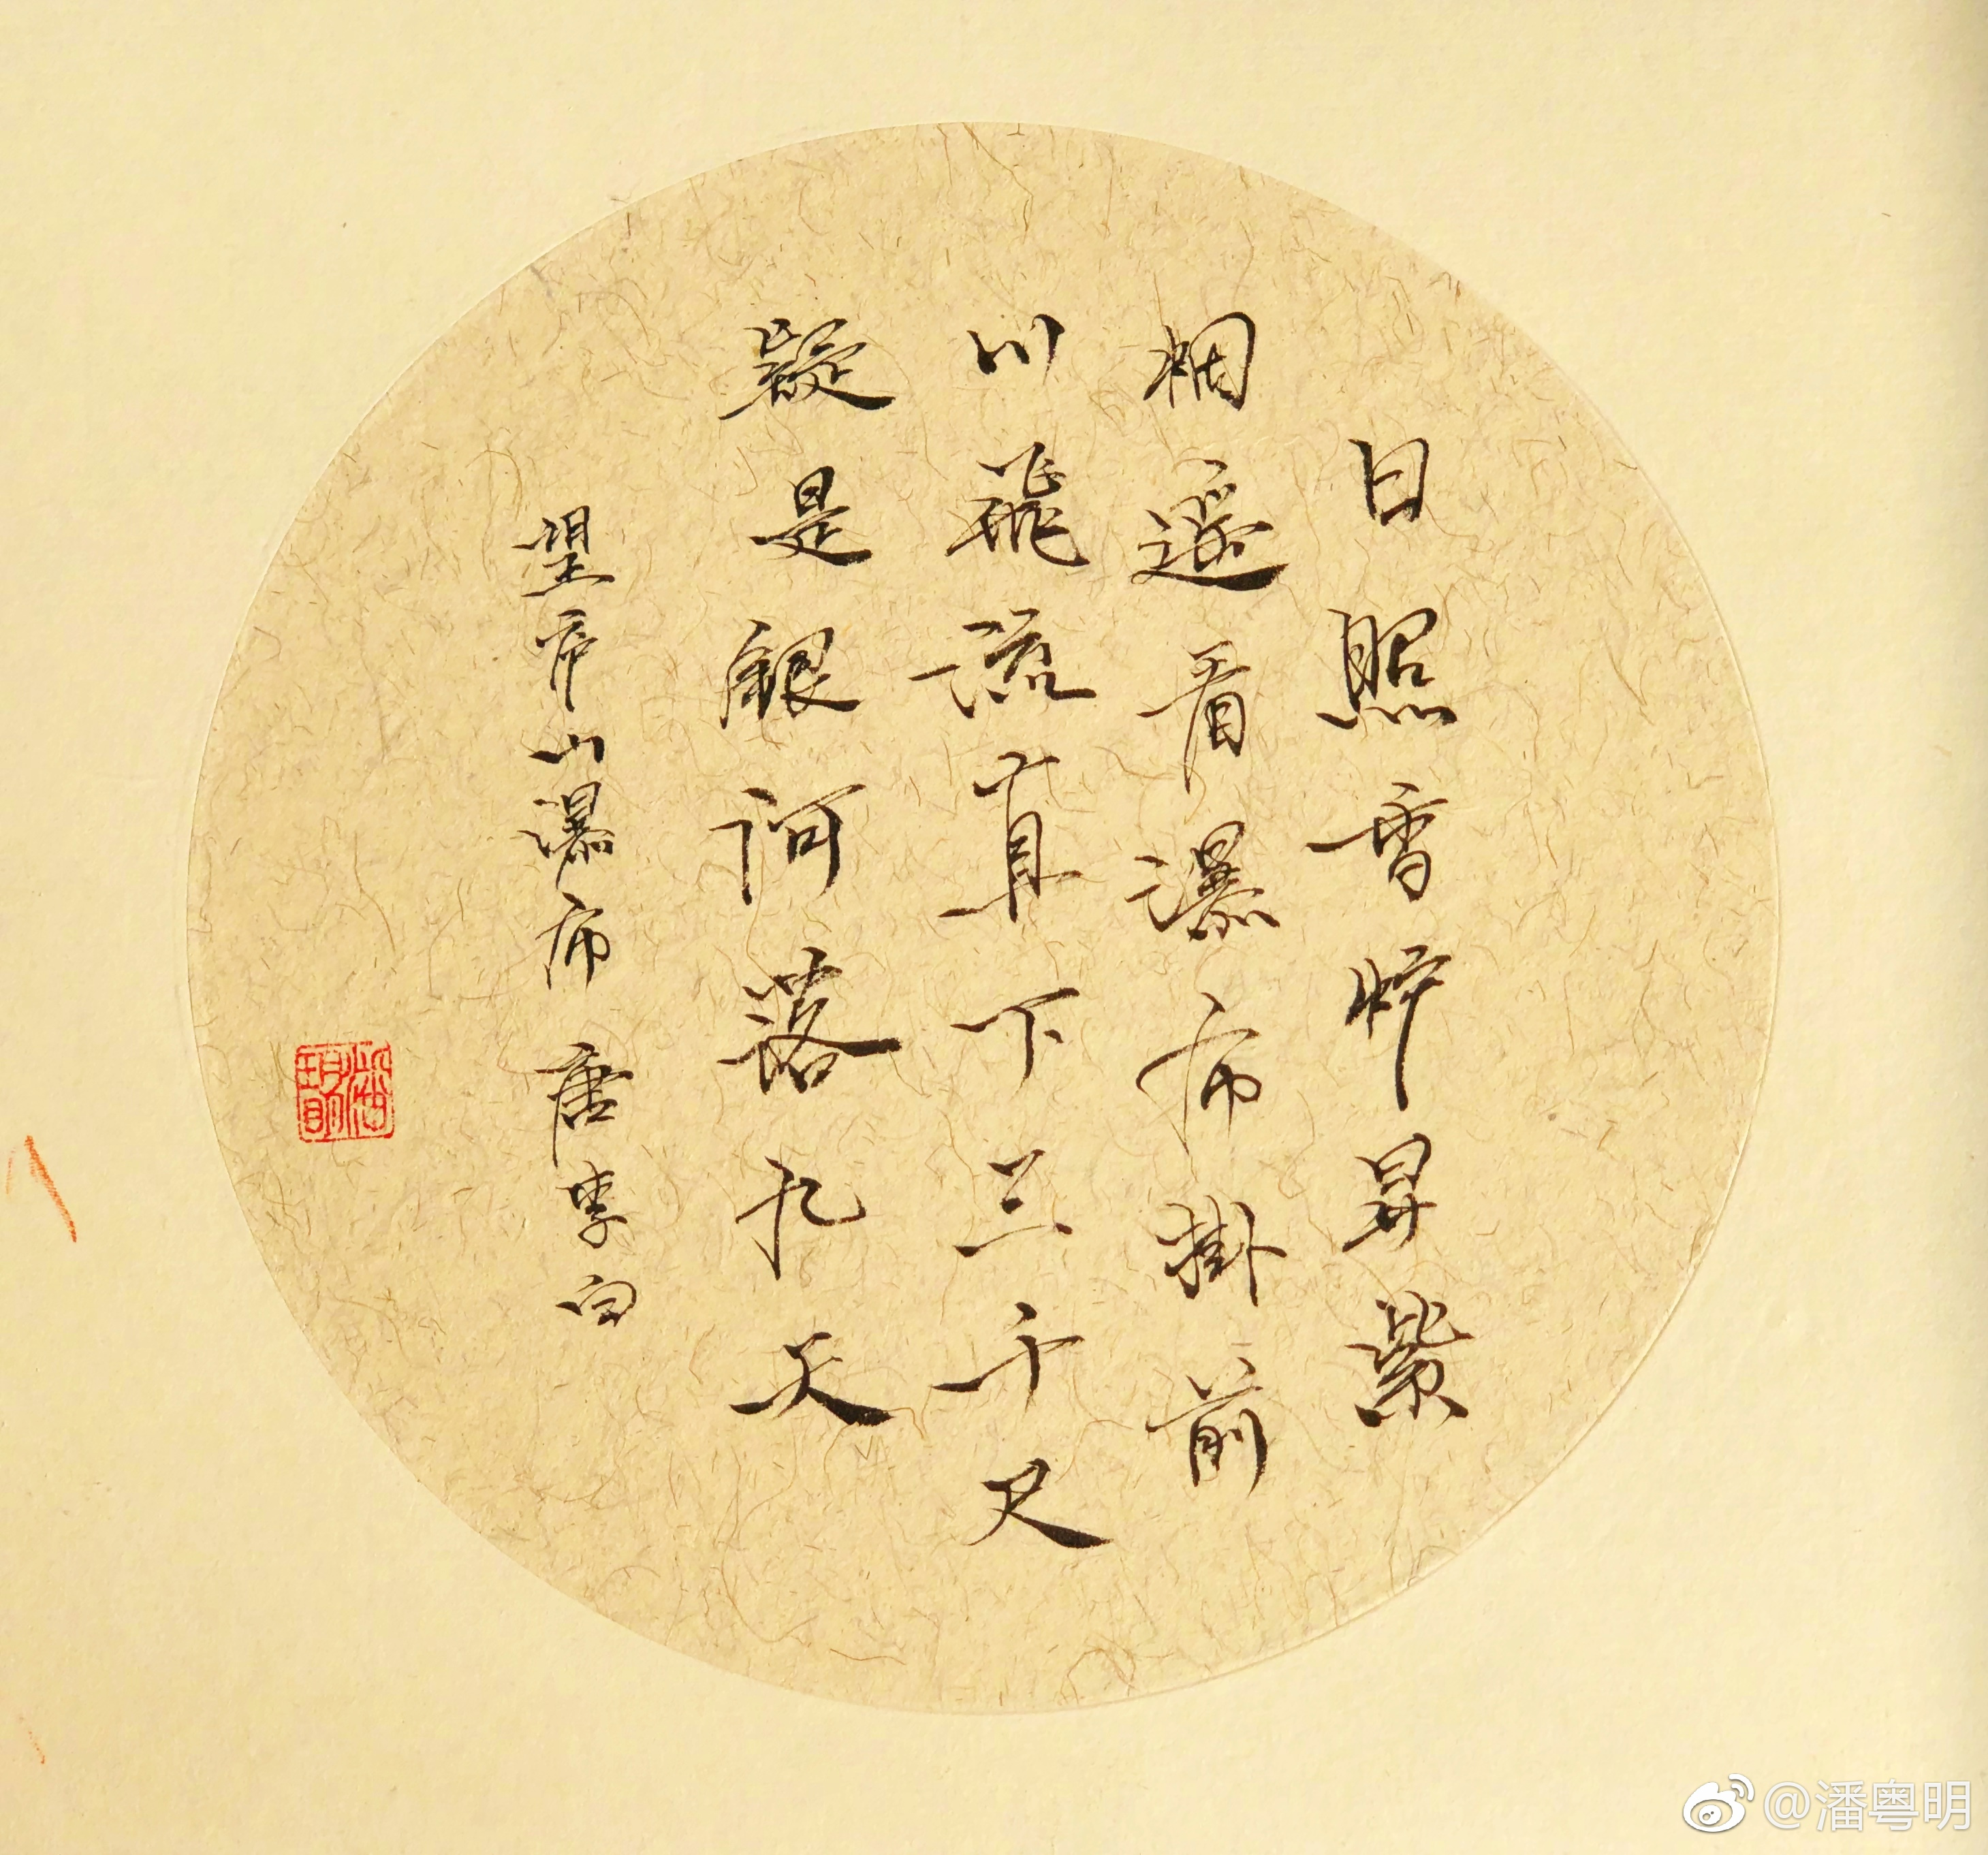 日照香炉昇紫
烟遙看瀑布掛前
川飛流直下三千尺
疑是銀河落九天
望庐山瀑布 唐李白
@潘粤明